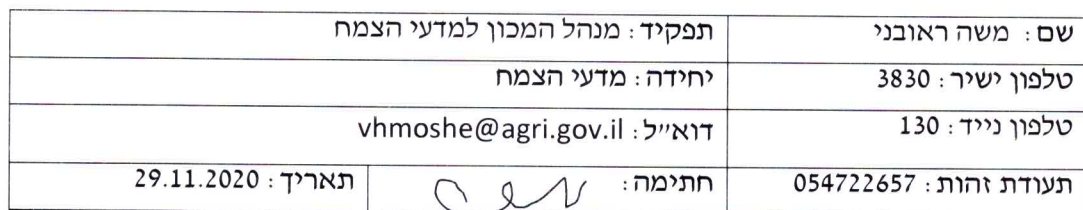 שם : משה ראובני תפקיד : מנהל המכון למדעי הצמח
טלפון ישיר : 3830 יחידה : מדעי הצמח
טלפון נייד : 130 דוא״ל : vhmoshe@agri.gov.il
תעודת זהות : 054722657 חתימה : תאריך : 29.11.2020